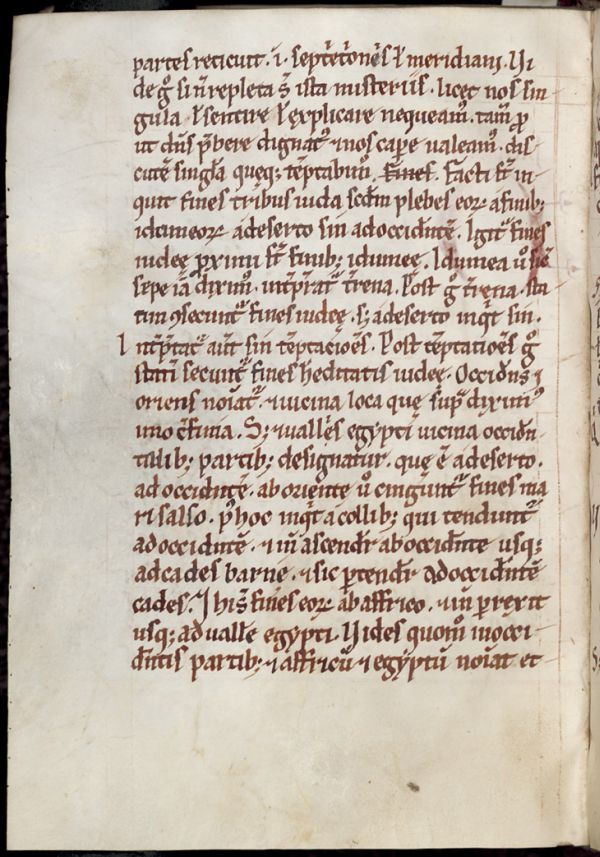 partes reticuit .i. septētōnēs ł meridianā. Ui
de gͦ si n̄ repleta s̄t ista misteriis. licet nos sin
gula ł sentire ł explicare nequeamꝰ. tam̄ ꝓ
ut dn̄s p̄bere dignatᷣ ⁊ nos cape valeamꝰ. dis
cutē singła queq; tēptabimꝰ. Fines. Facti st̄ in
quit fines tribus iuda scdm̄ plebes eoꝝ a finib;
idumeoꝝ a deserto sin ad occidntē. Igitᷣ fines
iudeę ꝓximi st̄ finib; idumeę. Idumea uͦ sic̄
sepe iā diximꝰ. int̄pratᷣ t̄rena. Post gͦ t̄rena. sta
tim ꝯsecuntᷣ fines iudeę. s; a deserto inqͥt sin.
Int̄ptatᷣ aut̄ sin tēptacioēs. Post tēptatioēs gͦ
statī secuntᷣ fines h̄editatis iudeę. Occidn̄s ⁊
oriens noīatᷣ. ⁊ uicina loca quę sup̄ diximꝰ
uno c̄finia. S; ⁊ uallēs egypti uicina occidn̄
talib; partib; designatur. quę ē a deserto.
ad occidntē. ab oriente uͦ cinguntᷣ fines ma
ri salso. p̄ hoc inqͥt a collib; qui tenduntᷣ
ad occidntē. ⁊ in̄ ascendr̄ ab occidnte usq;
ad cades barne. ⁊ sic ptendr̄ ad occidntē
cades. ⁊ his̄ fines eoꝝ ab affrico. ⁊ in̄ prexit
usq; ad uallē egypti. Uides quomͦ in occi
dn̄tis partib; ⁊ affricū ⁊ egyptū noīat et